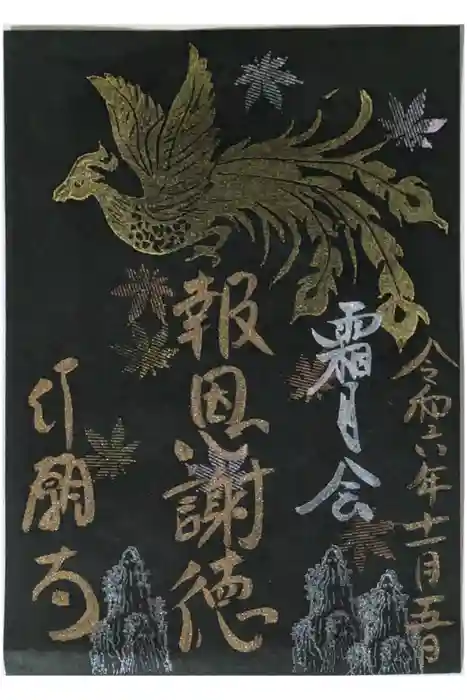 令和六年十一月五日
霜月会
報恩謝徳
行願寺